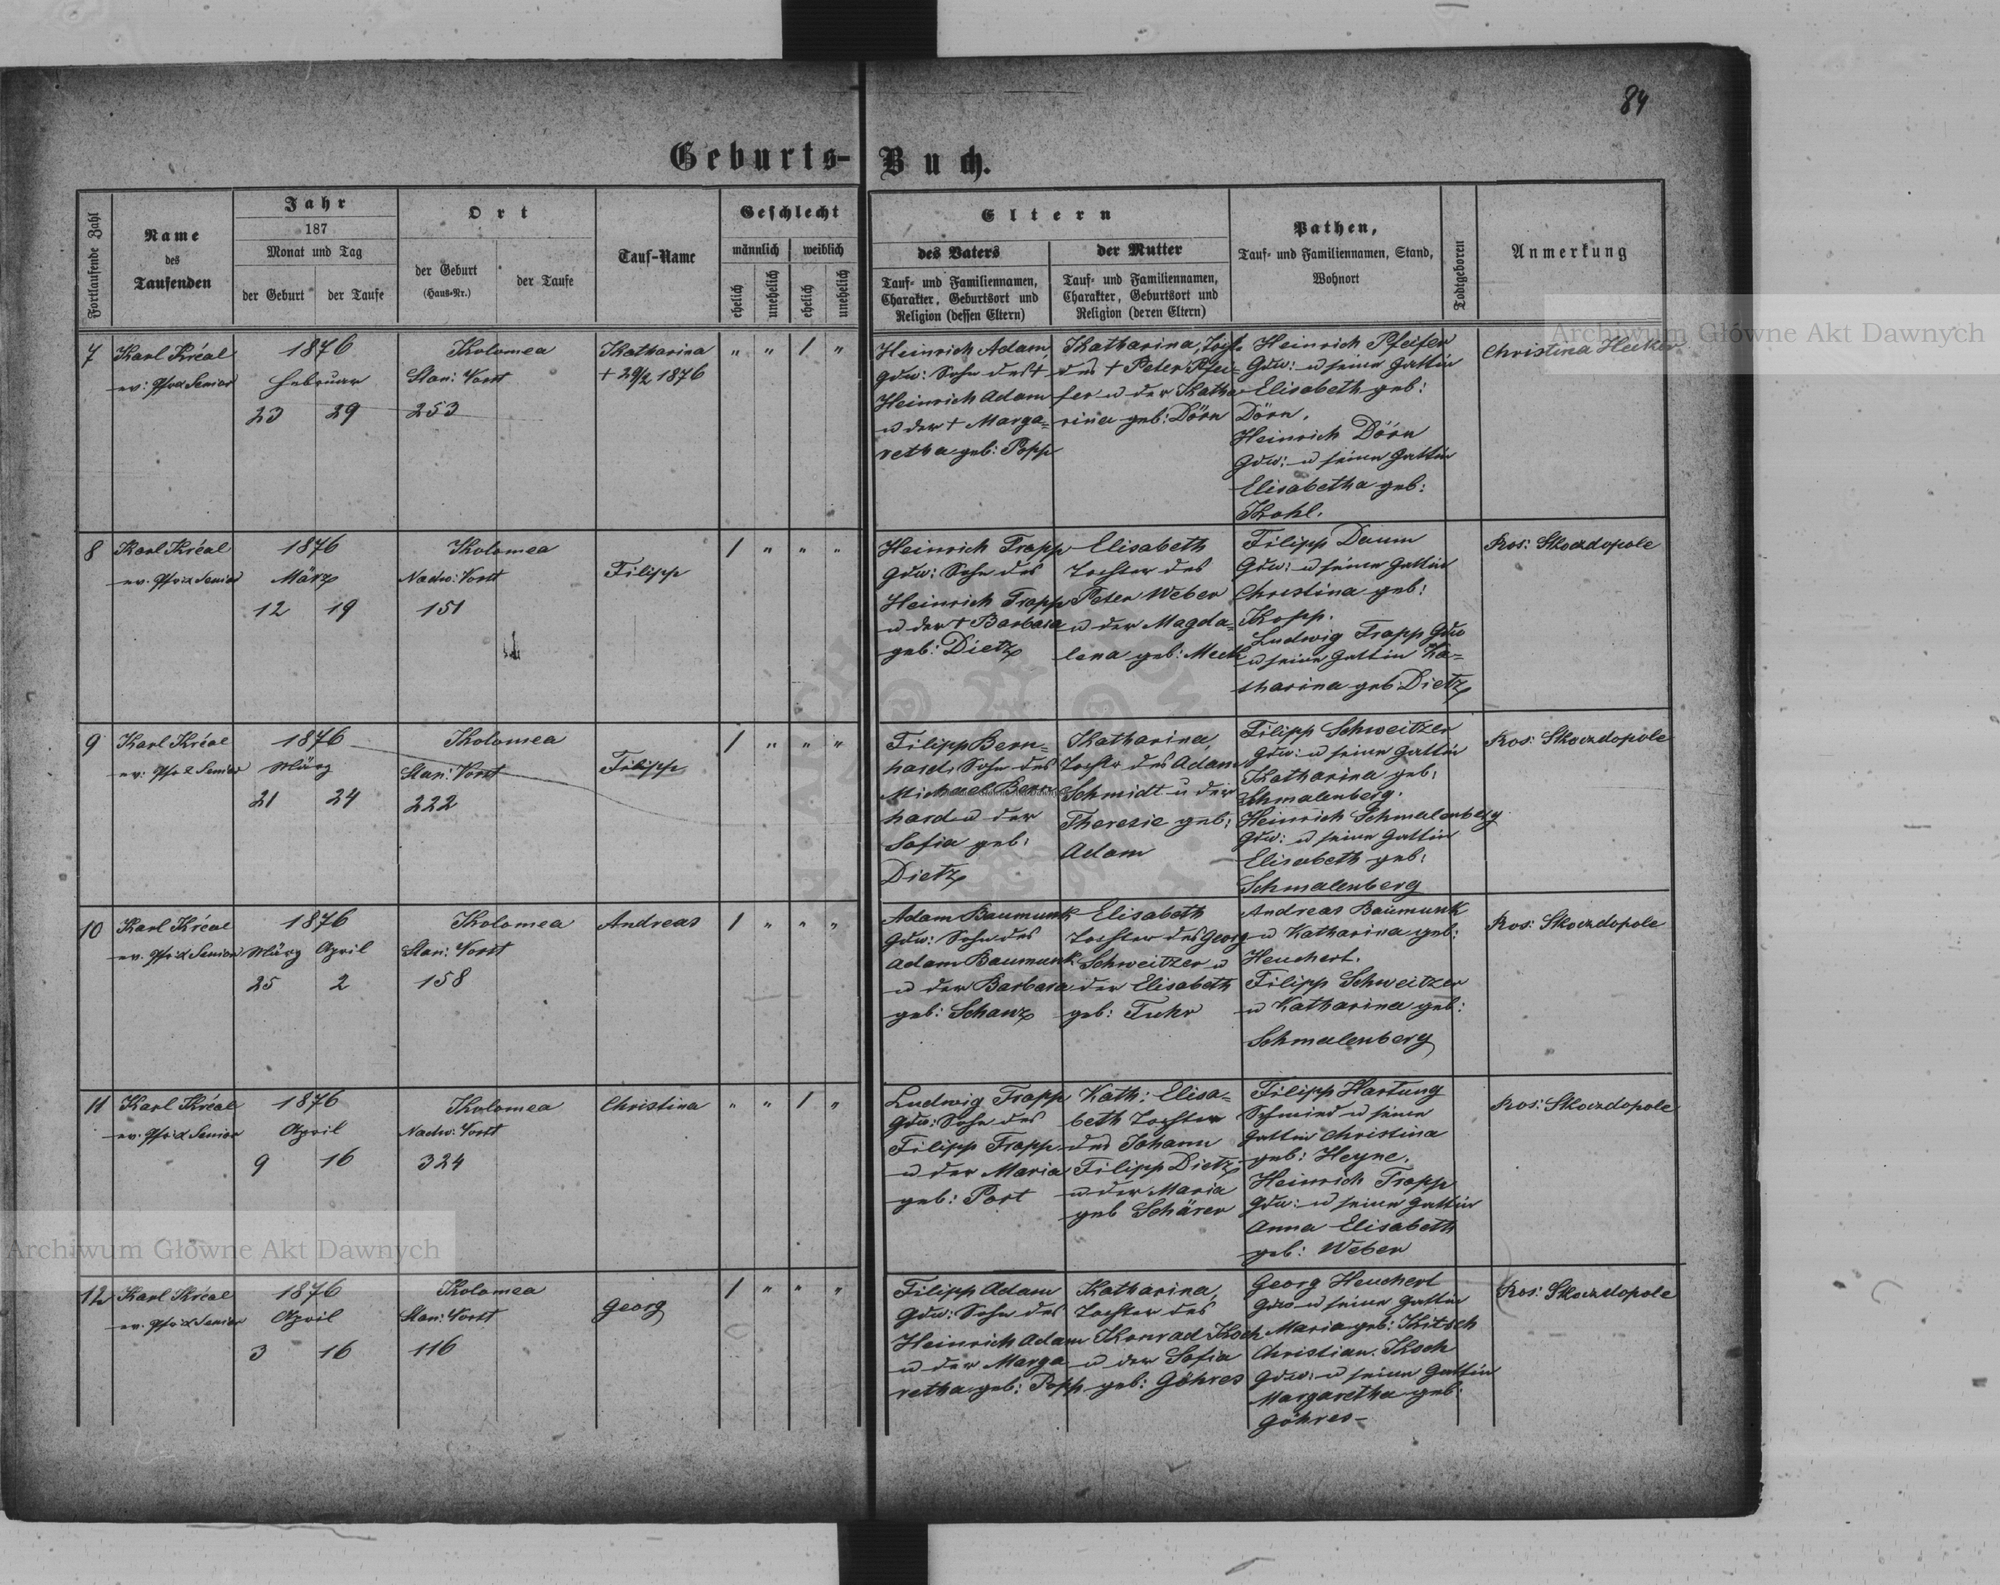 84
Geburts-Buch.
Fortlaufende Zahl
Name des Taufenden
Jahr
187
Monat und Tag
der Geburt
der Taufe
Ort
der Geburt (Haus-Nr.)
der Taufe
Tauf-Name
Geschlecht
männlich
weiblich
ehelich
unehelich
ehelich
unehelich
Eltern
des Vaters
Tauf- und Familiennamen, Charakter, Geburtsort und Religion (dessen Eltern)
der Mutter
Tauf- und Familiennamen, Charakter, Geburtsort und Religion (deren Eltern)
Pathen,
Tauf- und Familiennamen, Stand, Wohnort
Todtgeboren
Anmerkung
7
Karl Kréal
ev: Pfr & Senior
1876
Februar
23 29
Kolomea
Stan: Vorst
253
Katharina
+ 29/2 1876
" " 1 "
Heinrich Adam,
Gdw: Sohn des +
Heinrich Adam
u der + Marga=
retha geb: Popp
Katharina, Tocht.
des + Peter Pfei=
fer u der Katha
rina geb: Dörn
Heinrich Pfeifer
Gdw: u seine Gattin
Elisabeth geb:
Dörn.
Heinrich Dörn
Gdw: u seine Gattin
Elisabetha geb:
Kohl.
Christina Hecker
8
Karl Kréal
ev. Pfr & Senior
1876
März
12 19
Kolomea
Nadw: Vorst
151
Filipp
1 " " "
Heinrich Trapp
Gdw: Sohn des
Heinrich Trapp
u der + Barbara
geb: Dietz
Elisabeth
Tochter des
Peter Weber
u der Magda=
lena geb: Meck
Filipp Daum
Gdw: u seine Gattin
Christina geb:
Kopp.
Ludwig Trapp Gdw
u seine Gattin Ka=
tharina geb: Dietz
Ros: Skoczdopole
9
Karl Kréal
ev: Pfr & Senior
1876
März
21 24
Kolomea
Stan: Vorst
222
Filipp
1 " " "
Filipp Bern=
hard, Sohn des
Michael Bern
hard u der
Sofia geb:
Dietz
Katharina,
Tochtr des Adam
Schmidt u der
Theresie geb:
Adam
Filipp Schweitzer
Gdw: u seine Gattin
Katharina geb:
Schmalenberg.
Heinrich Schmalenberg
Gdw: u seine Gattin
Elisabeth geb:
Schmalenberg
Ros: Skoczdopole
10
Karl Kréal
ev. Pfr: & Senior
1876
März April
25 2
Kolomea
Stan: Vorst
158
Andreas
1 " " "
Adam Baumunk
Gdw: Sohn des
Adam Baumunk
u der Barbara
geb: Schanz
Elisabeth
Tochter des Georg
Schweitzer u
der Elisabeth
geb: Fuhr
Andreas Baumunk
u Katharina geb:
Heuchert.
Filipp Schweitzer
u Katharina geb:
Schmalenberg
Ros: Skoczdopole
11
Karl Kréal
ev: Pfr & Senior
1876
April
9 16
Kolomea
Nadw: Vorst
324
Christina
" " 1 "
Ludwig Trapp
Gdw: Sohn des
Filipp Trapp
u der Maria
geb: Port
Kath: Elisa=
beth Tochter
des Johann
Filipp Dietz
u der Maria
geb Schärer
Filipp Hartung
Schmied u seine
Gattin Christina
geb: Heyne.
Heinrich Trapp
Gdw: u seine Gattin
Anna Elisabeth
geb: Weber
Ros: Skoczdopole
12
Karl Kréal
ev. Pfr & Senior
1876
April
3 16
Kolomea
Stan: Vorst
116
Georg
1 " " "
Filipp Adam
Gdw: Sohn des
Heinrich Adam
u der Marga
retha geb: Popp
Katharina,
Tochter des
Konrad Koch
u der Sofia
geb: Göhres
Georg Heuchert
Gdw u seine Gattin
Maria geb: Kitsch
Christian Koch
Gdw: u seine Gattin
Margaretha geb:
Göhres
Ros: Skoczdopole
Archiwum Główne Akt Dawnych
Archiwum Główne Akt Dawnych